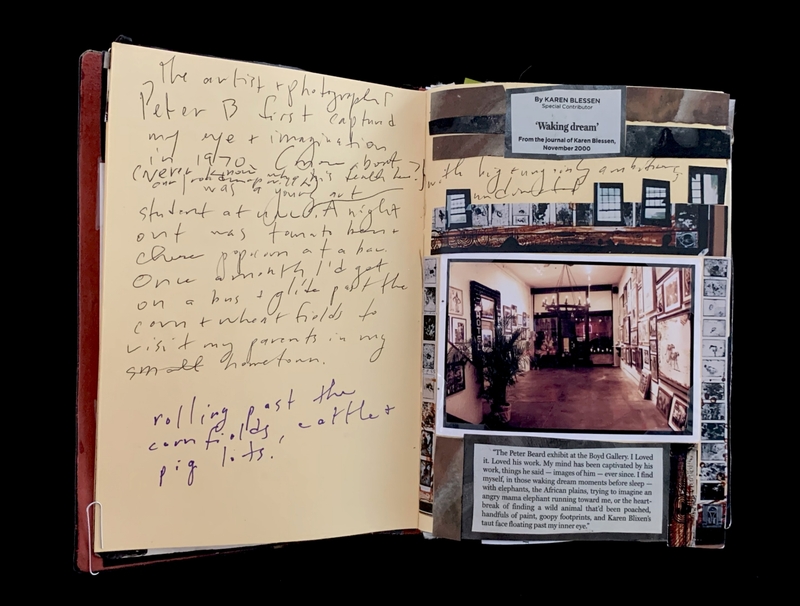 The artist + photographer
Peter B first captured
my eye + imagination
in 1970. I
was a young art
student at A night
out was tomato beer +
cheese popcorn at a bar.
Once a month I'd get
on a bus + glide past the
corn + wheat fields to
visit my parents in my
small hometown.
rolling past the
cornfields, cattle +
pig lots.
By KAREN BLESSEN
Special Contributor
'Waking dream'
From the journal of Karen Blessen,
November 2000
with big + ungainly ambitions
"The Peter Beard exhibit at the Boyd Gallery. I Loved
it. Loved his work. My mind has been captivated by his
work, things he said — images of him — ever since. I find
myself, in those waking dream moments before sleep —
with elephants, the African plains, trying to imagine an
angry mama elephant running toward me, or the heart-
break of finding a wild animal that'd been poached,
handfuls of paint, goopy footprints, and Karen Blixen's
taut face floating past my inner eye."